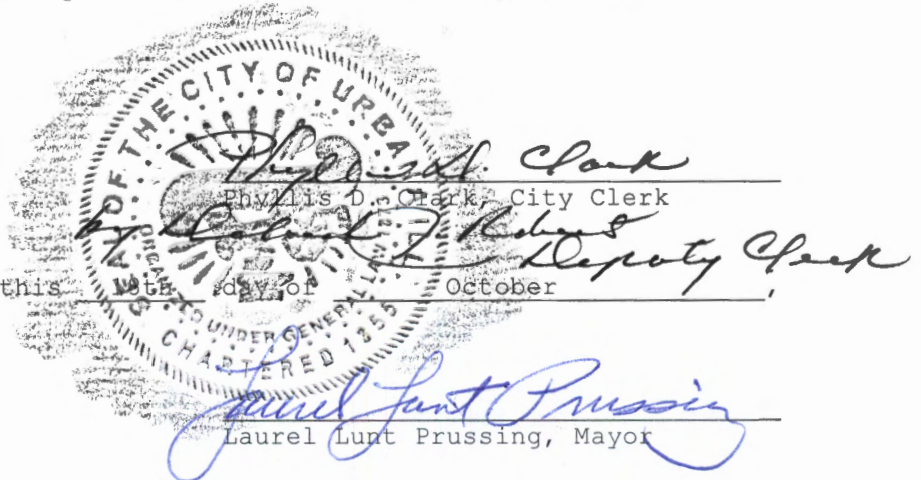 SEAL OF THE CITY OF URBANA
ORGANIZED UNDER GENERAL LAW
CHARTERED 1855
Phyllis D. Clark
Phyllis D. Clark, City Clerk
by Roberts
Deputy Clerk
this 18th day of October ,
Laurel Lunt Prussing
Laurel Lunt Prussing, Mayor